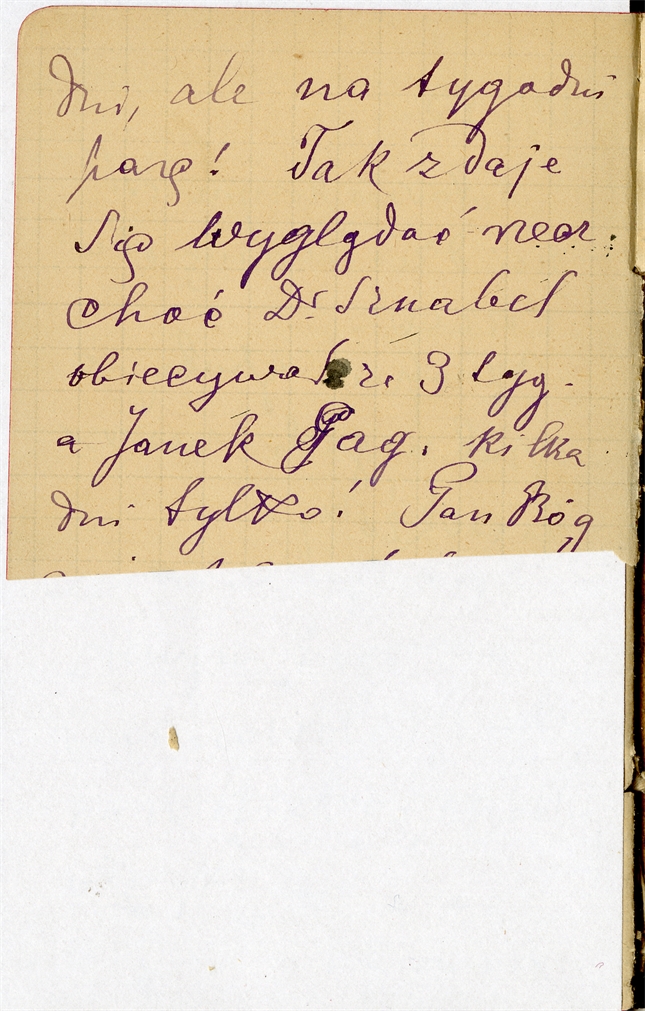 dni, ale na tygodni
parę! Tak zdaje
się wyglądać
choć Dr. Sznabel
obiecywał że 3 tyg.
a Janek Pag. kilka
dni tylko! Pan Bóg